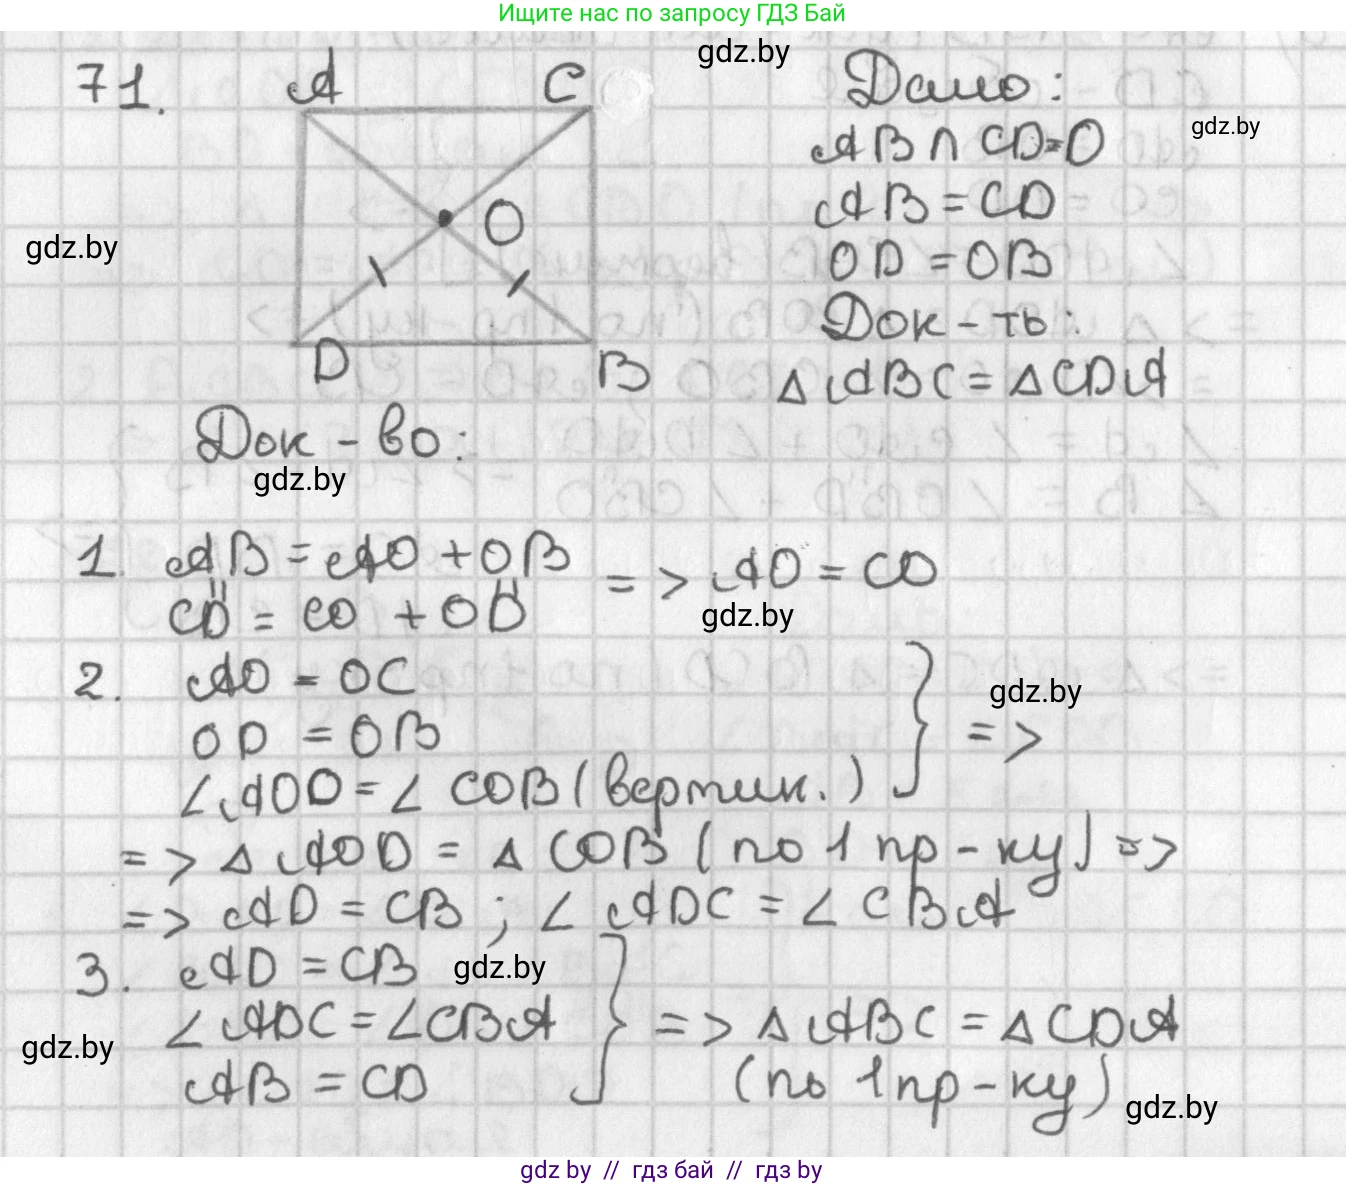 Ищите нас по запросу ГДЗ Бай
gdz.by
71. A C Дано:
gdz.by
AB ∩ CD = O
AB = CD
O
gdz.by
OD = OB
Док-ть:
D B
△ABC = △CDA
Док-во:
gdz.by
1. AB = AO + OB
=> AO = CO
CD = CO + OD
gdz.by
2. AO = OC
gdz.by
OD = OB
=>
∠AOD = ∠COB (вертик.)
=> △AOD = △COB (по 1 пр-ку) =>
=> AD = CB ; ∠ADC = ∠CBA
3. AD = CB
gdz.by
∠ADC = ∠CBA => △ABC = △CDA
gdz.by
AB = CD (по 1 пр-ку)
gdz.by
gdz.by // гдз бай // гдз by